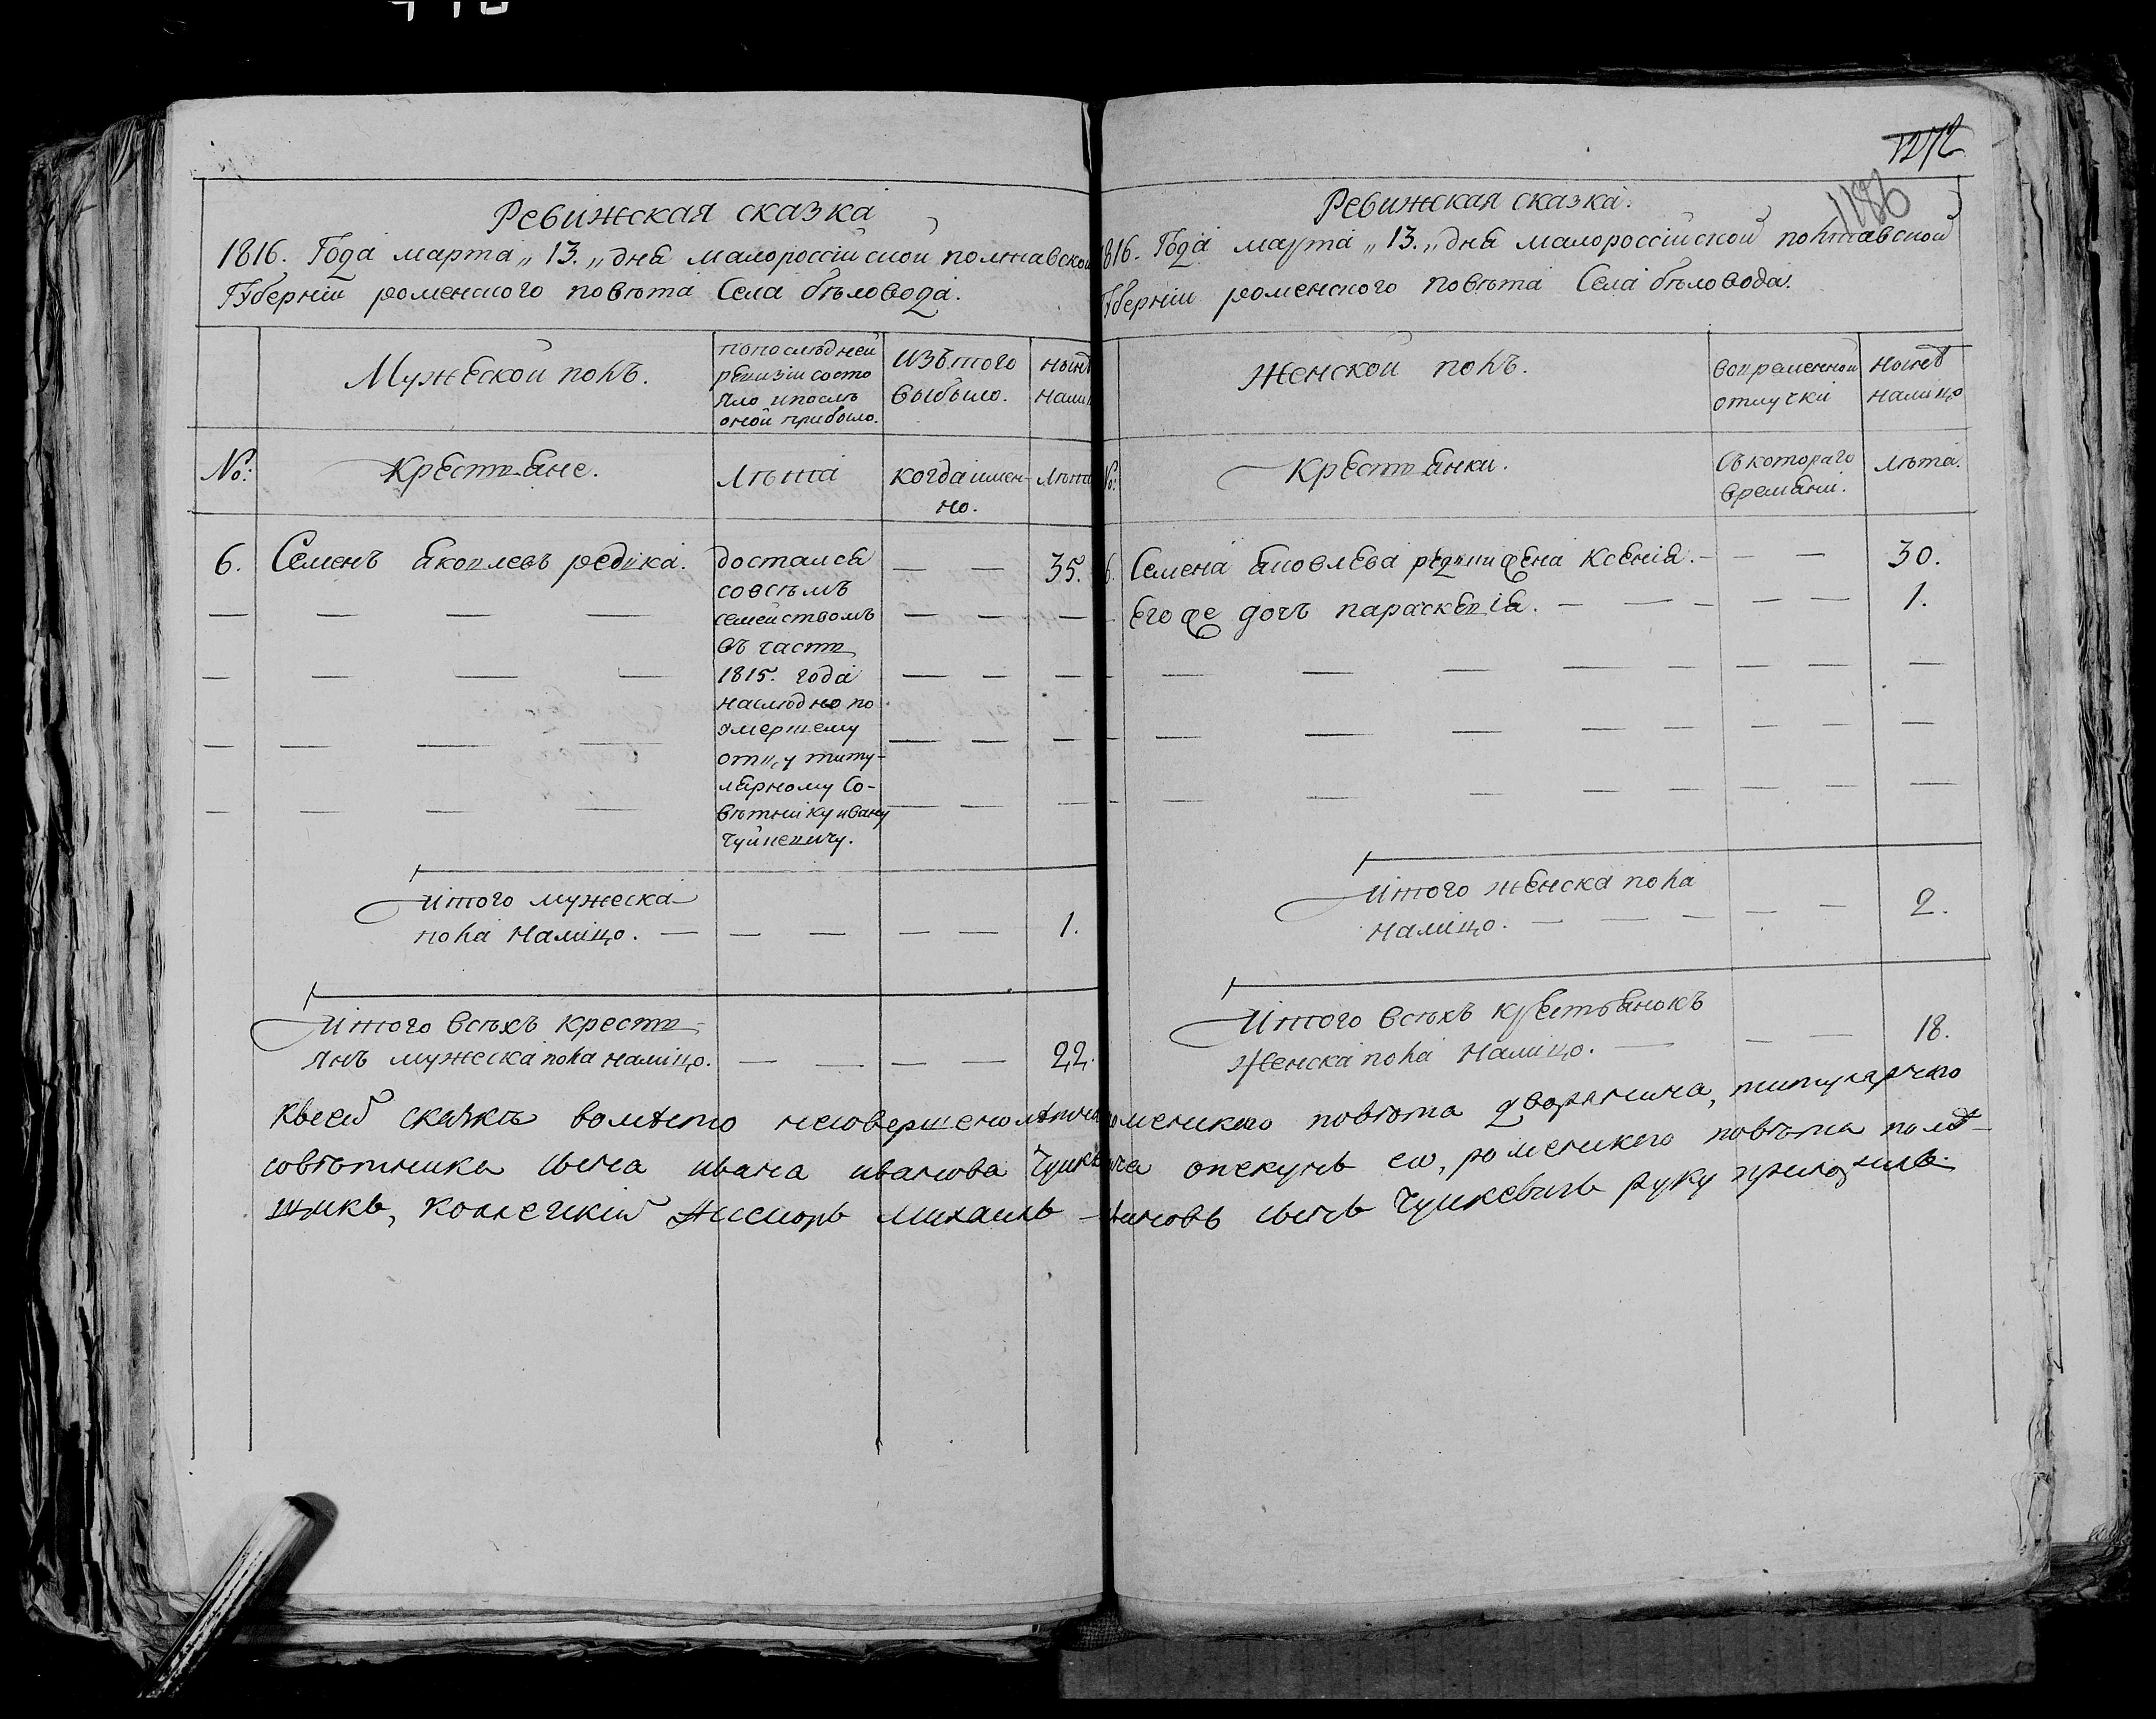 Ревижская сказка
1816. Года марта „13.„ дня малороссійской полтавской
Губерніи роменского повѣта Села бѣловода.
Мужеской полъ.
попослѣдней
ревизіи состо
яло ипослѣ
оной прибыло.
Изътого
выбыло.
нынѣ
нали
№:
Крестьяне.
Лѣта
когдаимен-
но.
Лѣта
6. Семенъ Яковлевъ редка. 35.
достался
совсѣмъ
семействомъ
въ часть
1815. года
наслюдно по
умершему
отцу титу-
лярному Со-
вѣтнику ивану
Чуйкевичу.
Итого мужеска
пола Налицо. 1.
Итого всѣхъ крестъ-
янъ мужеска пола налицо. 22.
1272
1186
Ревижская сказка.
1816. Года марта „13.„ дня малороссійской полтавской
Губерніи роменского повѣта Села бѣловода.
Женской полъ.
вовременной
отлучки
Нынѣ
налицо
№:
Крестьянки.
Съкотораго
времяни.
лѣта.
6. Семена Яковлева жена Ксенія. 30.
Его же дочъ параскевія. 1.
Итого женска пола
налицо. 2.
Итого всѣхъ крестьянокъ
Женска пола Налицо. 18.
Квсей сказкѣ вомѣсто несовершенолѣтняго роменского повѣта дворянина, титулярного
совѣтника сына ивана иванова Чуйкевича опекунъ ево, роменского повѣта помѣ-
щикъ, Коллежкій Ассесоръ михаилъ ивановъ сынъ Чуйкевичъ руку приложилъ.